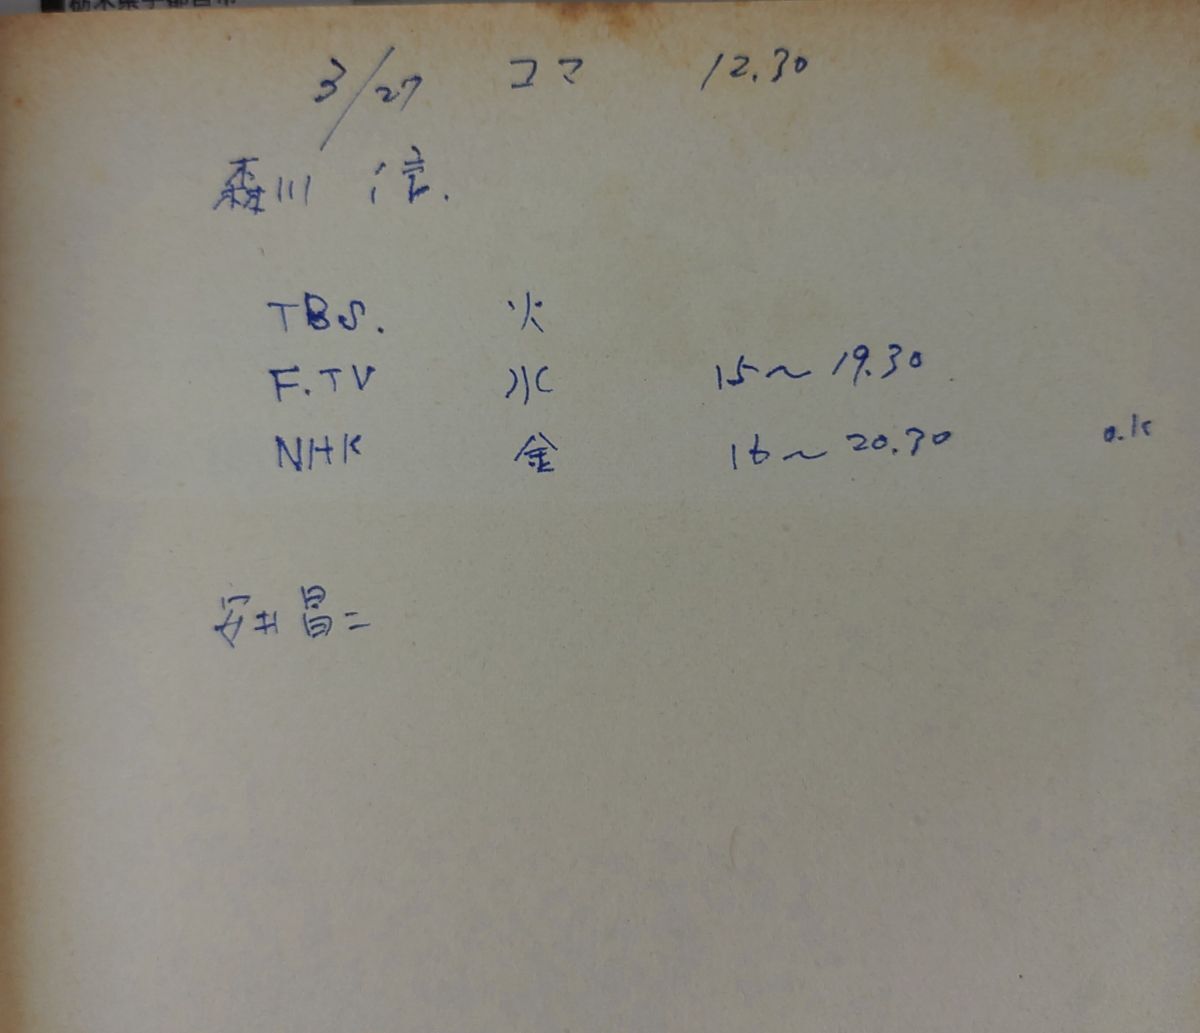 ■栃木県宇都宮市
3/27 コマ 12.30
森川 信.
TBS. 火
F.TV 水 15〜19.30
NHK 金 16〜20.30 o.k
安井昌二